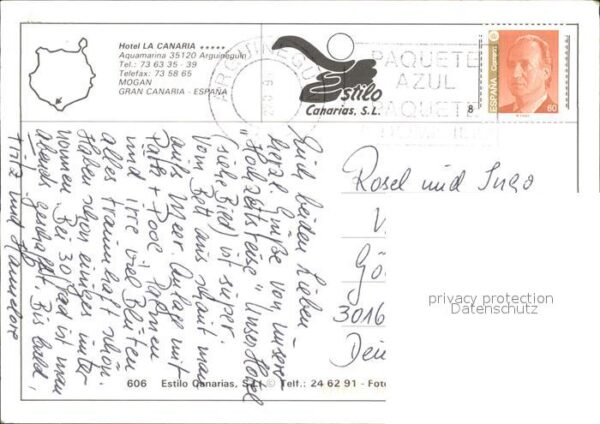 Hotel LA CANARIA *****
Aquamarina 35120 Arguineguin
Tel.: 73 63 35 - 39
Telefax: 73 58 65
MOGAN
GRAN CANARIA - ESPAÑA
ARGUINEGU
Estilo
Canarias, S.L.
PAQUETE
AZUL
PAQUETE
8
ESPAÑA
Correos
60
Euch beiden Lieben
herzl. Grüße von unserer
"Hochzeitsreise". Unser Hotel
(siehe Bild) ist super.
Vom Bett aus schaut man
aufs Meer. Anlage mit
Palmen
und irre viel Blüten
alles traumhaft schön.
Haben schon einiges unter
nommen. Bei 30 Grad ist man
abends geschafft. Bis bald,
und Hannelore
Rosel und Ingo
V
Gö
3016
Deu
privacy protection
Datenschutz
606 Estilo Canarias, S.L. © Telf.: 24 62 91 - Foto